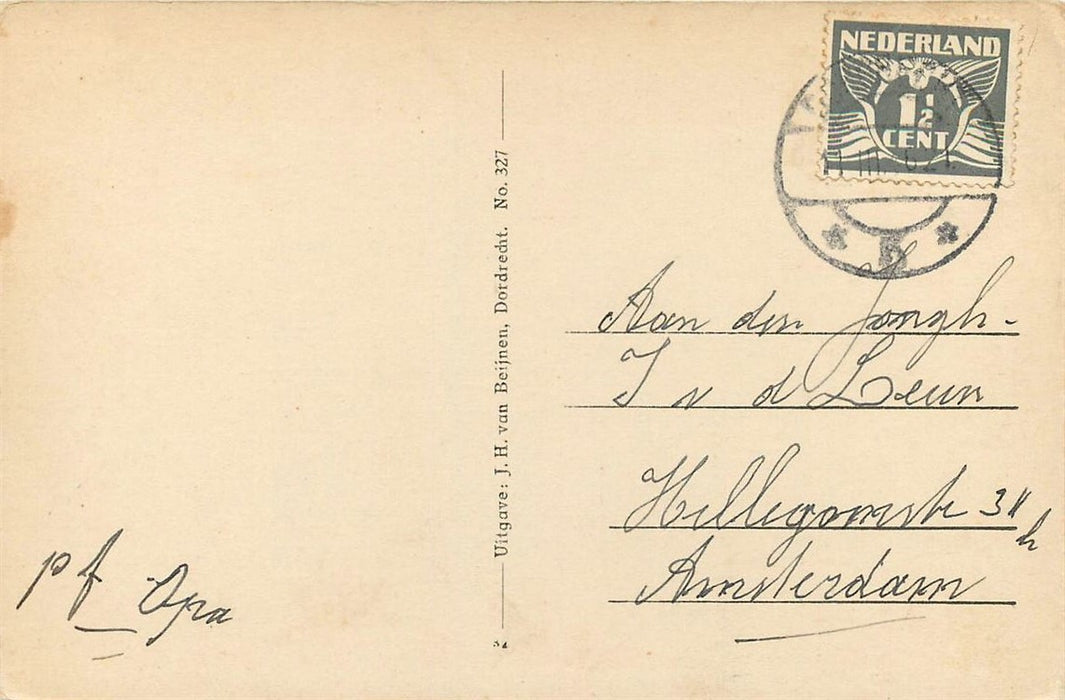 NEDERLAND
1½
CENT
Uitgave: J. H. van Beijnen, Dordrecht. No. 327
Aan den Jongh.
J v d Leun
Hillegomstr 3 II
h
Amsterdam
pf Opa